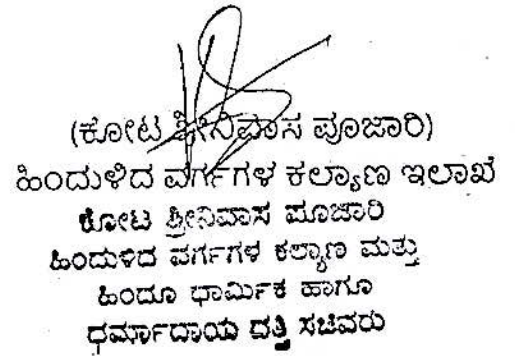 (ಕೋಟ ಶ್ರೀನಿವಾಸ ಪೂಜಾರಿ)
ಹಿಂದುಳಿದ ವರ್ಗಗಳ ಕಲ್ಯಾಣ ಇಲಾಖೆ
ಕೋಟ ಶ್ರೀನಿವಾಸ ಪೂಜಾರಿ
ಹಿಂದುಳಿದ ವರ್ಗಗಳ ಕಲ್ಯಾಣ ಮತ್ತು
ಹಿಂದೂ ಧಾರ್ಮಿಕ ಹಾಗೂ
ಧರ್ಮಾದಾಯ ದತ್ತಿ ಸಚಿವರು